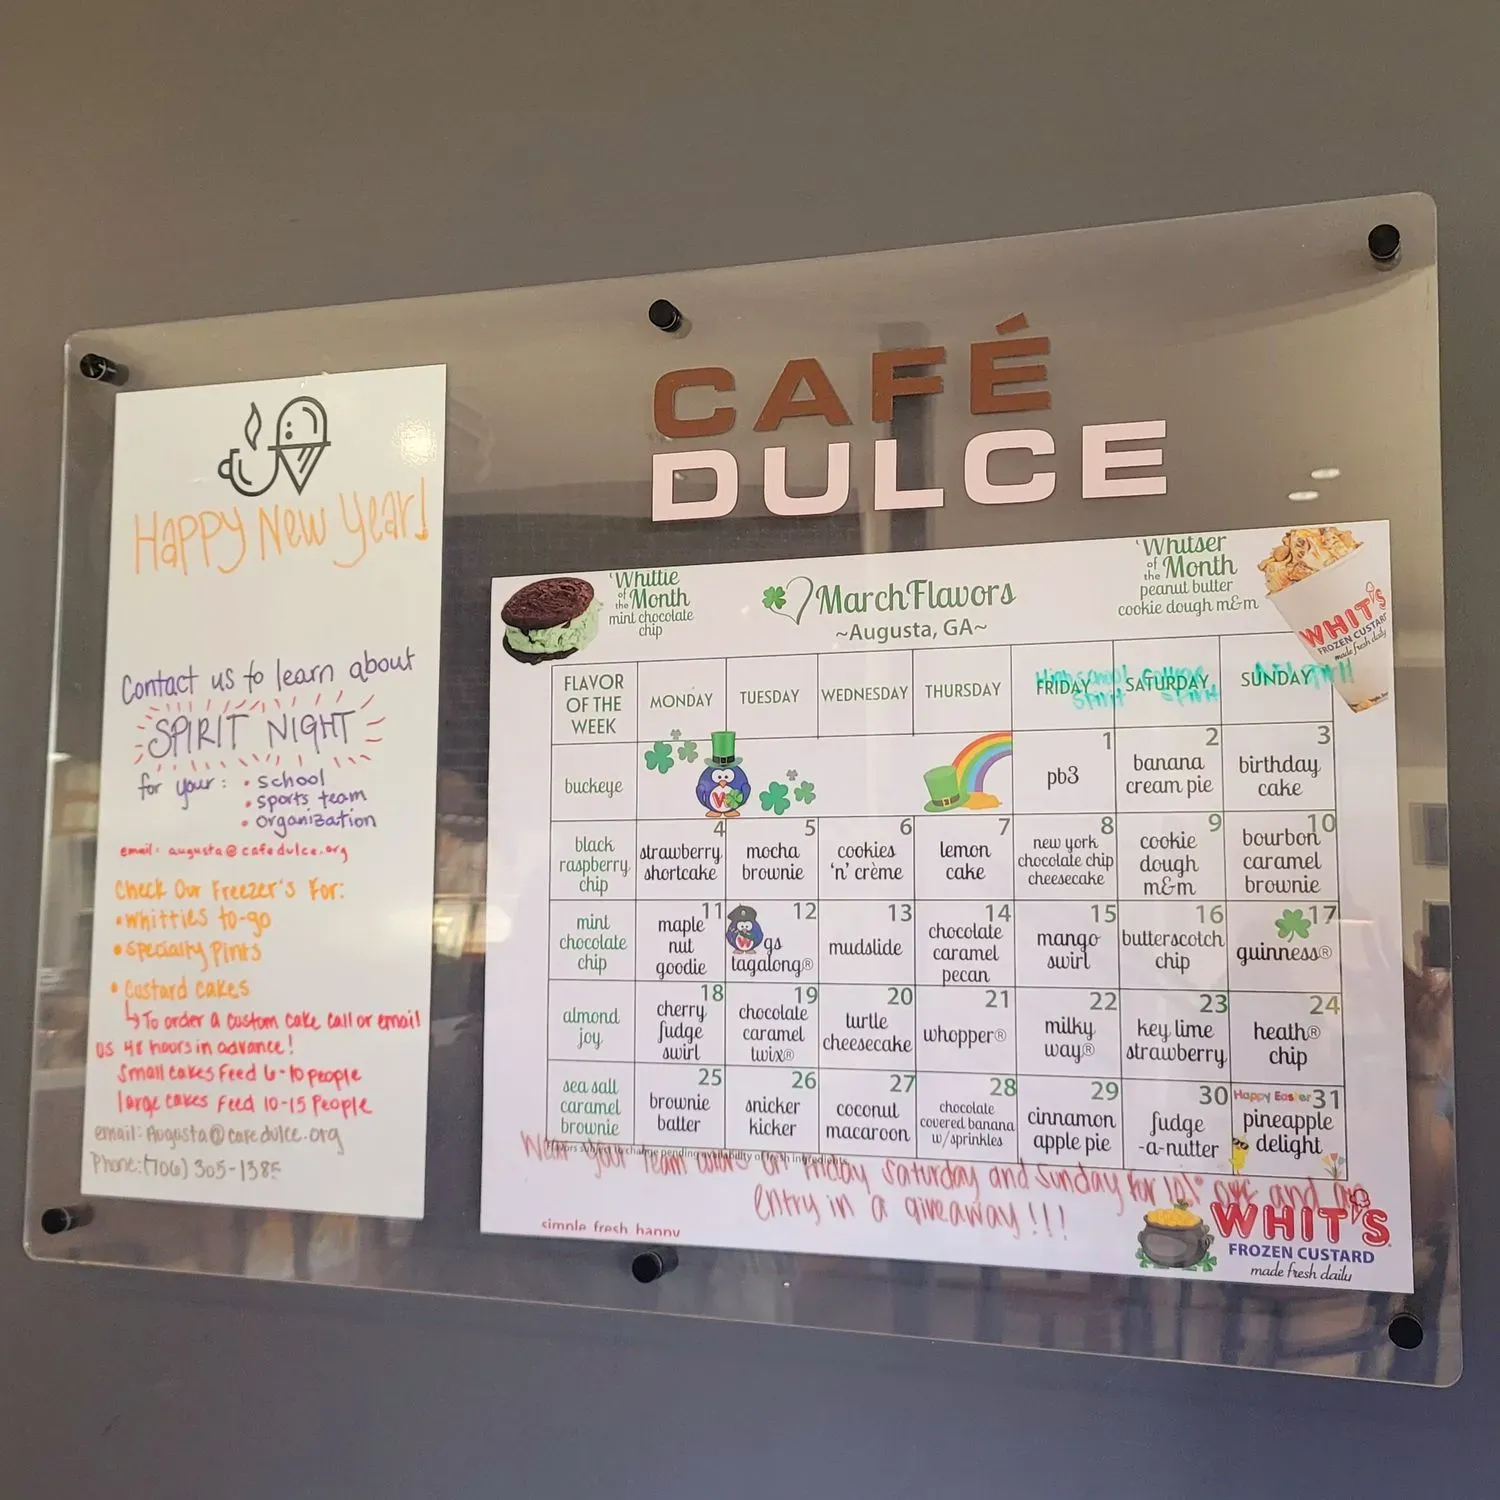 Happy New Year!
Contact us to learn about
SPIRIT NIGHT
for your: • school
• sports team
• organization
email: augusta@cafedulce.org
Check Our Freezer's For:
• Whitties to-go
• Specialty Pints
• Custard Cakes
↳ To order a custom cake call or email
us 48 hours in advance!
Small cakes Feed 6-10 people
large cakes Feed 10-15 People
email: Augusta@cafedulce.org
Phone: (706) 305-1385
CAFÉ
DULCE
'Whittie
of the Month
mint chocolate
chip
March Flavors
~Augusta, GA~
'Whitser
of the Month
peanut butter
cookie dough m&m
WHIT'S
FROZEN CUSTARD
made fresh daily
FLAVOR OF THE WEEK MONDAY TUESDAY WEDNESDAY THURSDAY FRIDAY SATURDAY SUNDAY
High school Spirit College Spirit NFL Spirit!
buckeye
1 pb3
2 banana cream pie
3 birthday cake
black raspberry chip
4 strawberry shortcake
5 mocha brownie
6 cookies 'n' crème
7 lemon cake
8 new york chocolate chip cheesecake
9 cookie dough m&m
10 bourbon caramel brownie
mint chocolate chip
11 maple nut goodie
12 gs tagalong®
13 mudslide
14 chocolate caramel pecan
15 mango swirl
16 butterscotch chip
17 guinness®
almond joy
18 cherry fudge swirl
19 chocolate caramel twix®
20 turtle cheesecake
21 whopper®
22 milky way®
23 key lime strawberry
24 heath® chip
sea salt caramel brownie
25 brownie batter
26 snicker kicker
27 coconut macaroon
28 chocolate covered banana w/sprinkles
29 cinnamon apple pie
30 fudge -a-nutter
Happy Easter 31 pineapple delight
Flavors subject to change pending availability of fresh ingredients
Wear your team colors on Friday Saturday and Sunday for 10% off and an
entry in a giveaway!!!
simple fresh happy
WHIT'S
FROZEN CUSTARD
made fresh daily